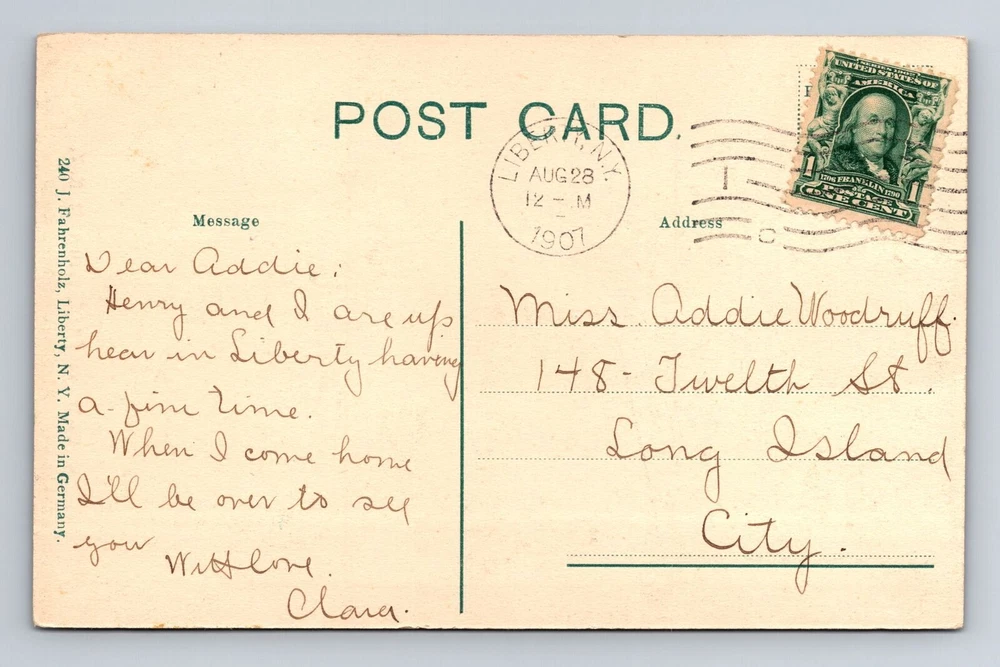 POST CARD.
SERIES 1902
UNITED STATES OF
AMERICA
1 1
1706 FRANKLIN 1790
POSTAGE
ONE CENT
LIBERTY, N.Y.
AUG 28
12 - M
1907
I
C
Message
Address
240 J. Fahrenholz, Liberty, N. Y. Made in Germany.
Dear Addie;
Henry and I are up
hear in Liberty having
a fine time.
When I come home
I'll be over to see
you
With love.
Clara.
Miss. Addie Woodruff.
148 - Twelth St.
Long Island
City.